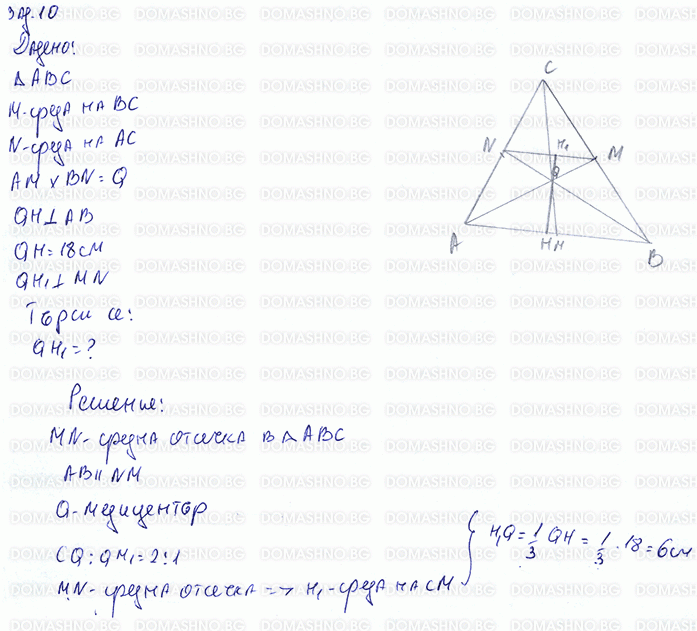 зад.10
Дадено:
△ABC
M-среда на BC
N-среда на AC
AM x BN = Q
QH⊥AB
QH=18см
QH₁⊥MN
Търси се:
QH₁=?
C
N
H₁
M
Q
A
H
M
B
Решение:
MN-средна отсечка в △ABC
AB || NM
Q-медицентър
CQ:QH₁=2:1
MN-средна отсечка => H₁-среда на CM
H₁Q = 1/3 QH = 1/3 . 18 = 6см
DOMASHNO.BG